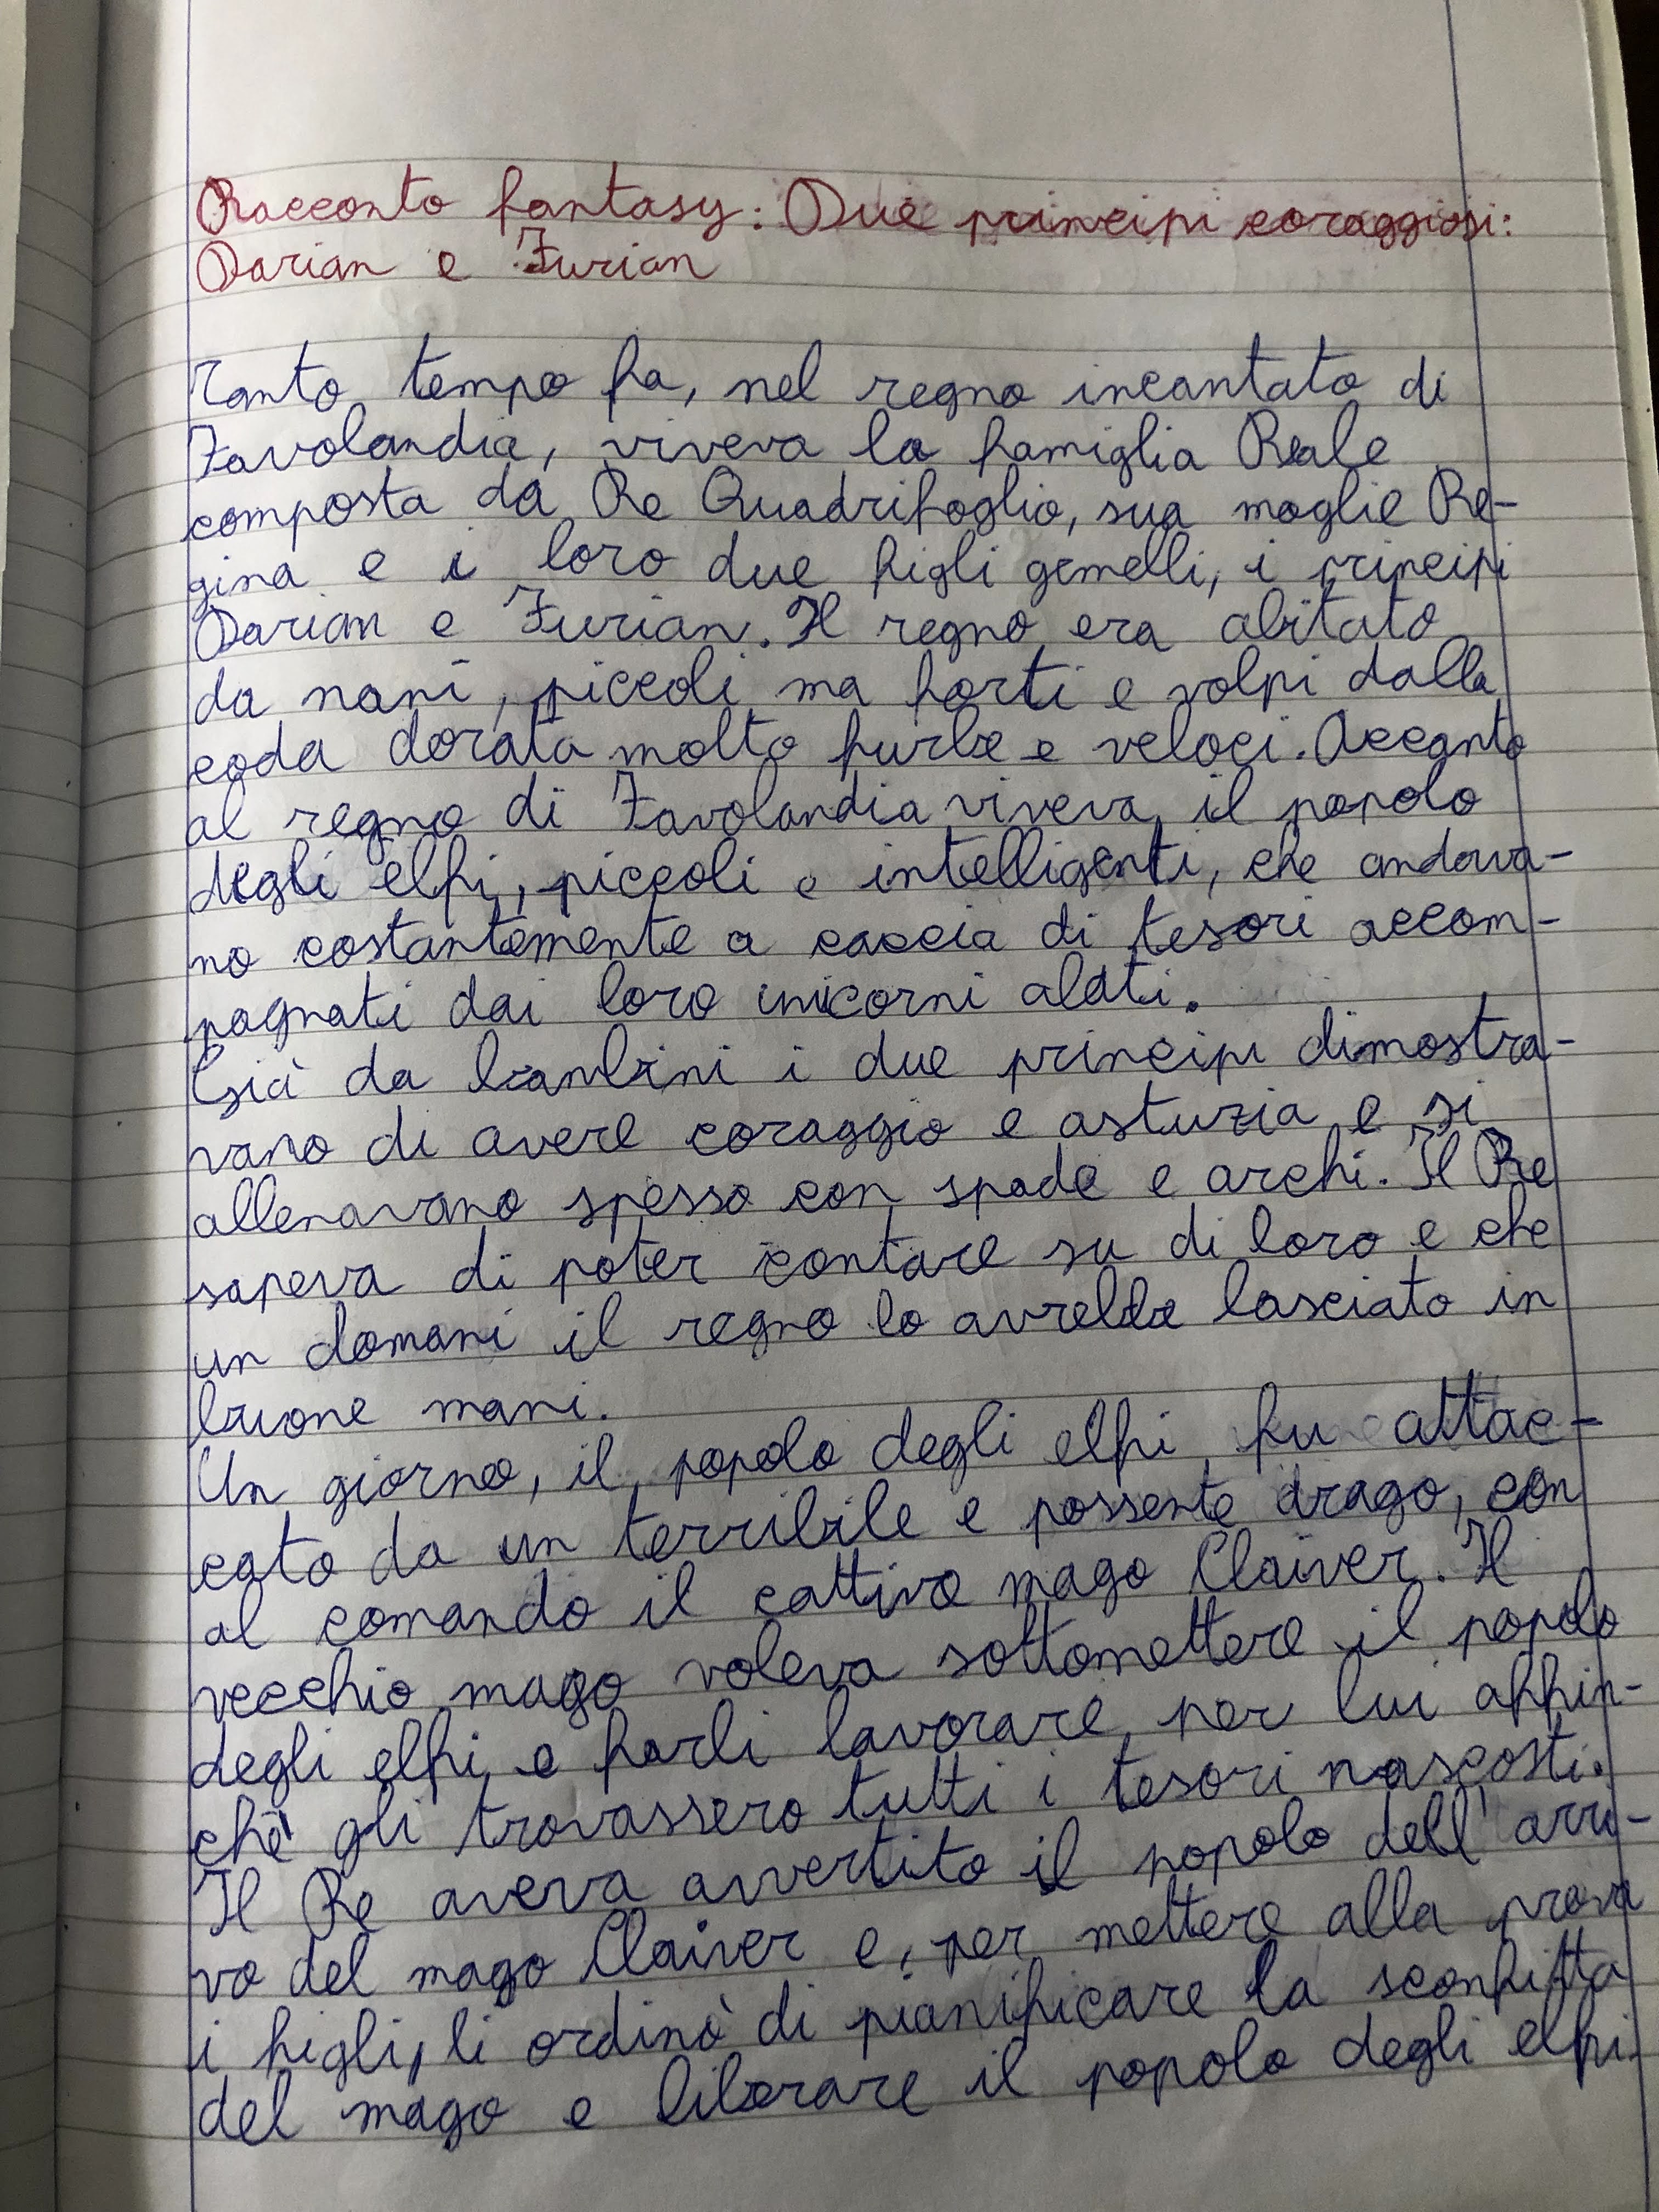 Racconto fantasy: Due principi coraggiosi:
Darian e Furian
Tanto tempo fa, nel regno incantato di
Favolandia, viveva la famiglia Reale
composta da Re Quadrifoglio, sua moglie Re-
gina e i loro due figli gemelli, i principi
Darian e Furian. Il regno era abitato
da nani, piccoli ma forti e volpi dalla
coda dorata molto furbe e veloci. Accanto
al regno di Favolandia viveva il popolo
degli elfi, piccoli e intelligenti, che andava-
no costantemente a caccia di tesori accom-
pagnati dai loro unicorni alati.
Già da bambini i due principi dimostra-
vano di avere coraggio e astuzia e si
allenavano spesso con spade e archi. Il Re
sapeva di poter contare su di loro e che
un domani il regno lo avrebbe lasciato in
buone mani.
Un giorno, il popolo degli elfi fu attac-
cato da un terribile e possente drago, con
al comando il cattivo mago Claiver. Il
vecchio mago voleva sottomettere il popolo
degli elfi e farli lavorare per lui affin-
chè gli trovassero tutti i tesori nascosti.
Il Re aveva avvertito il popolo dell'arri-
vo del mago Claiver e, per mettere alla prova
i figli, li ordinò di pianificare la sconfitta
del mago e liberare il popolo degli elfi.